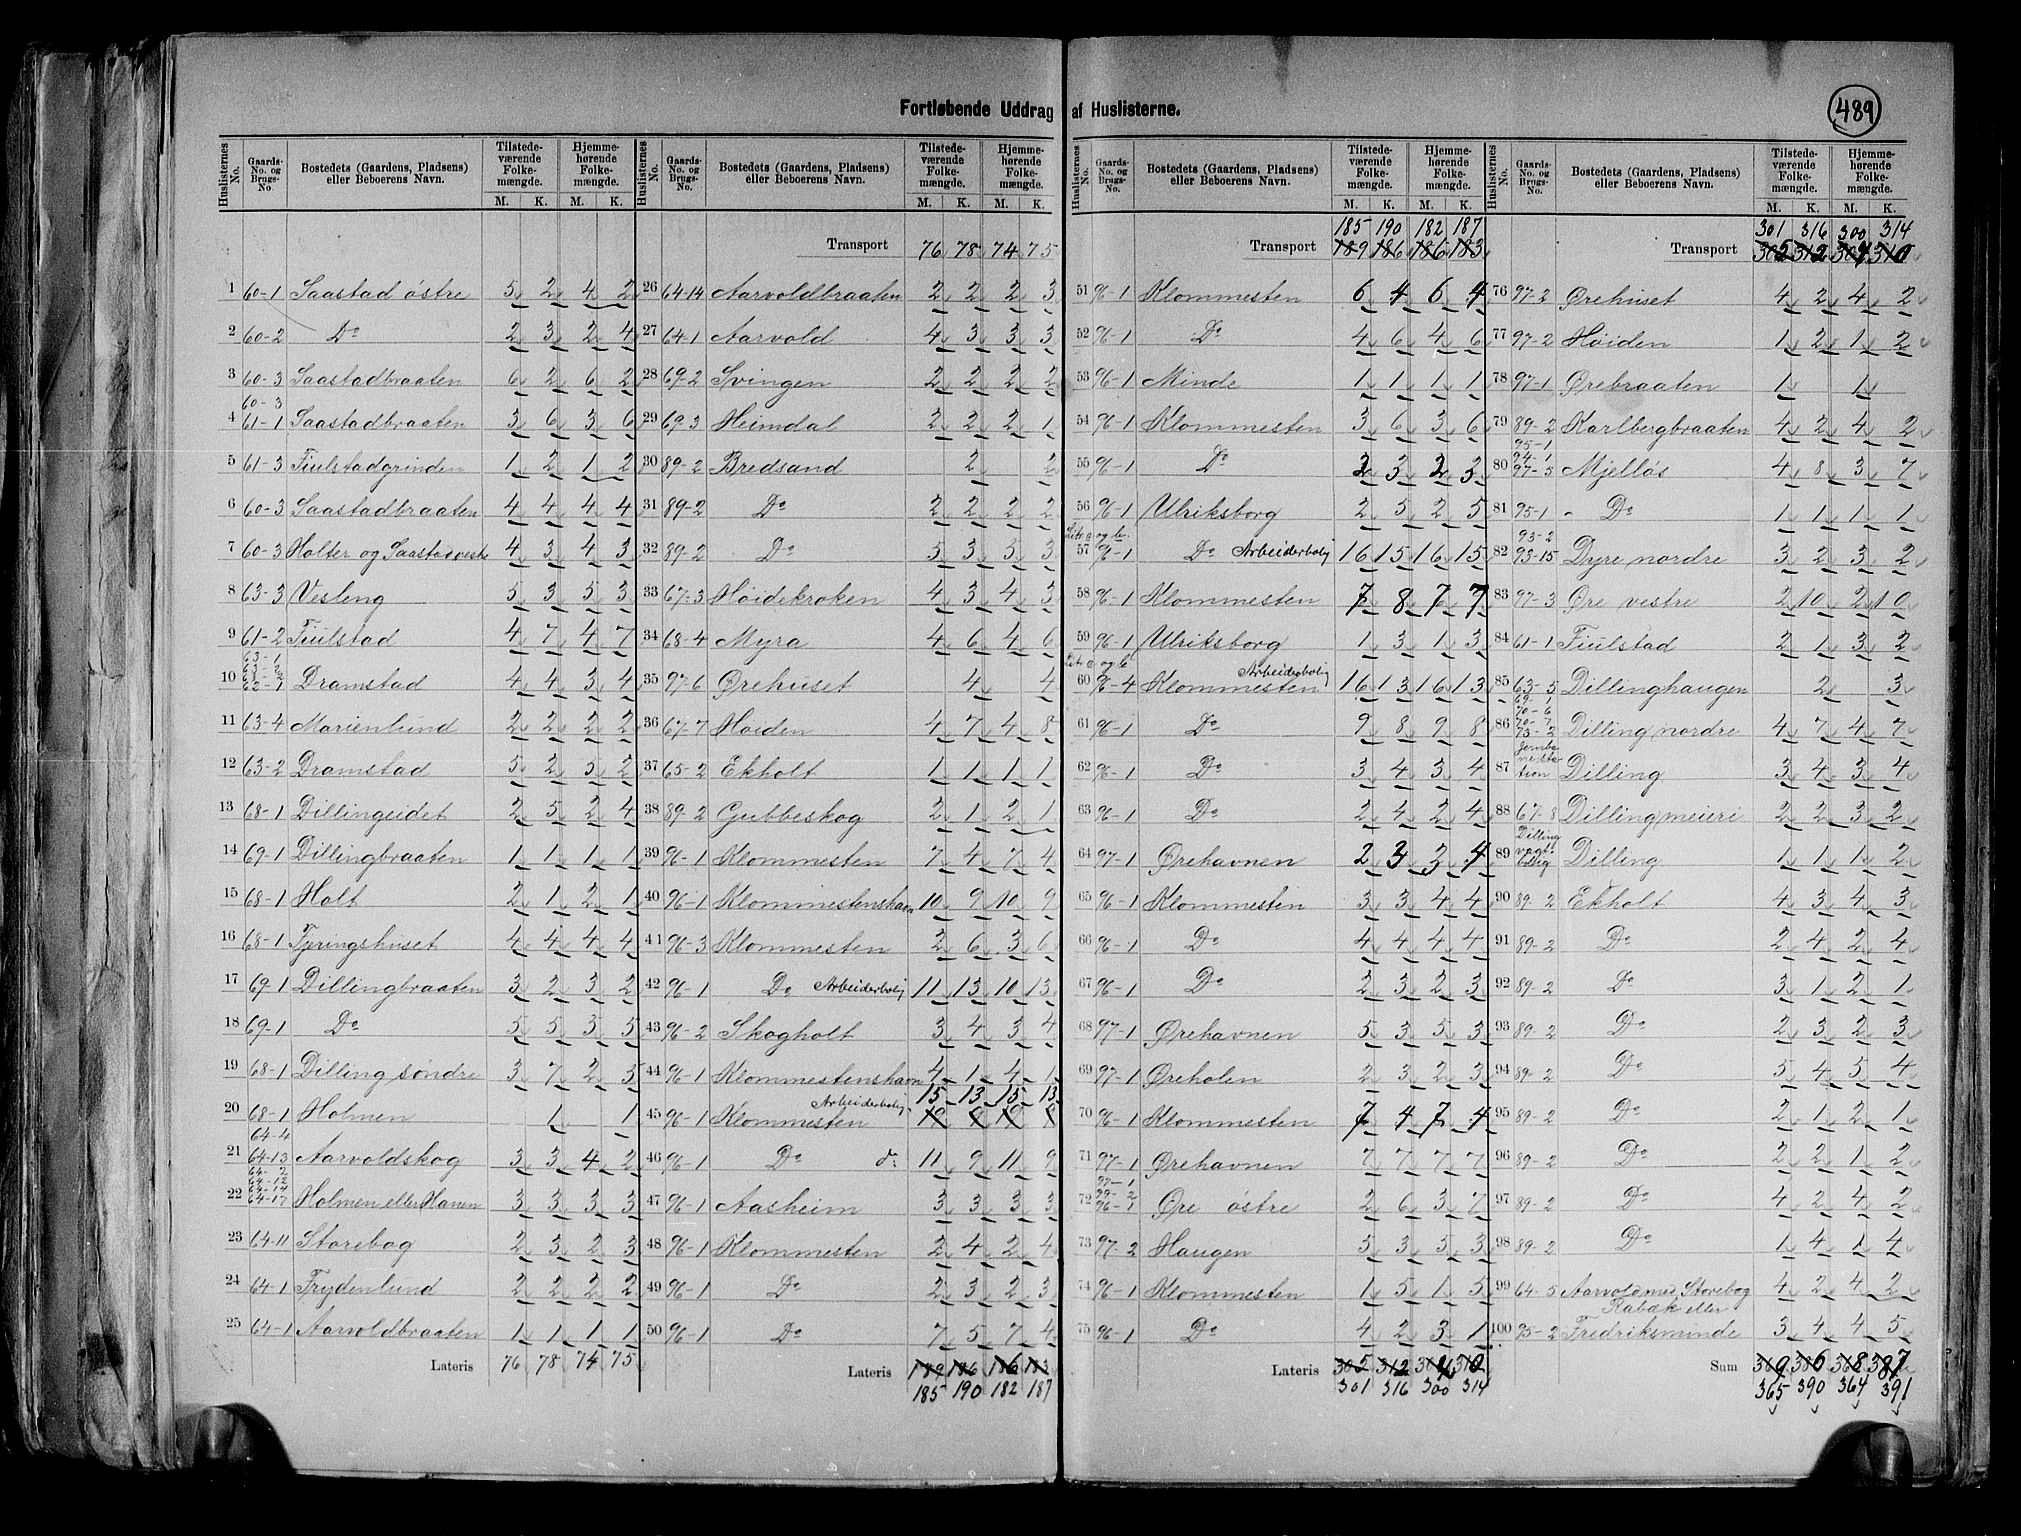 Fortløbende Uddrag af Huslisterne.
489
Huslisternes No. Gaards-No. og Brugs-No. Bostedets (Gaardens, Pladsens) eller Beboerens Navn. Tilstedeværende Folkemængde. M. K. Hjemmehørende Folkemængde. M. K.
1 60-1 Saastad østre 5 2 4 2
2 60-2 Do 2 3 2 4
3 60-3 Saastadbraaten 6 2 6 2
4 60-3 61-1 Saastadbraaten 3 6 3 6
5 61-3 Fiulstadgrinden 1 2 1 2
6 60-3 Saastadbraaten 4 4 4 4
7 60-3 Holter og Saastad vestre 4 3 4 3
8 63-3 Vesteng 5 3 5 3
9 61-2 Fiulstad 4 7 4 7
10 63-1 62-1 Dramstad 4 4 3 4
11 63-4 Marienlund 2 2 2 2
12 63-2 Dramstad 5 2 5 2
13 68-1 Dillingeidet 2 5 2 4
14 69-1 Dillingbraaten 1 1 1 1
15 68-1 Holt 2 1 2 1
16 68-1 Tjeringshuset 4 4 4 4
17 69-1 Dillingbraaten 3 2 3 2
18 69-1 Do 5 5 5 5
19 68-1 Dilling søndre 3 7 2 5
20 68-1 Holmen 1 1
21 64-4 64-13 Aarvoldskog 3 3 4 2
22 64-2 64-12 64-14 64-17 Holmen eller Hanen 3 3 3 3
23 64-11 Storebog 2 3 2 3
24 64-1 Frydenlund 2 2 2 2
25 64-1 Aarvoldbraaten 1 1 1 1
Lateris 76 78 74 75
Huslisternes No. Gaards-No. og Brugs-No. Bostedets (Gaardens, Pladsens) eller Beboerens Navn. Tilstedeværende Folkemængde. M. K. Hjemmehørende Folkemængde. M. K.
Transport 76 78 74 75
26 64-14 Aarvoldbraaten 2 2 2 3
27 64-1 Aarvold 4 3 3 3
28 69-2 Svingen 2 2 2 2
29 69-3 Heimdal 2 2 2 1
30 89-2 Bredsand 2 2
31 89-2 Do 2 2 2 2
32 89-2 Do 5 3 5 3
33 67-3 Høidekroken 4 3 4 3
34 68-4 Myra 4 6 4 6
35 97-6 Ørehuset 4 4
36 67-7 Høiden 4 7 4 8
37 65-2 Ekholt 1 1 1 1
38 89-2 Gubbeskog 2 1 2 1
39 96-1 Klommesten 7 4 7 4
40 96-1 Klommestenshavn 10 9 10 9
41 96-3 Klommesten 2 6 3 6
42 96-1 Do Arbeiderbolig 11 13 10 13
43 96-2 Skogholt 3 4 3 4
44 96-1 Klommestenshavn 4 1 4 1
Arbeiderbolig 15 13 15 13
45 96-1 Klommesten 19 8 19 8
46 96-1 Do do 11 9 11 9
47 96-1 Aasheim 3 3 3 3
48 96-1 Klommesten 2 4 2 4
49 96-1 Do 2 3 2 3
50 96-1 Do 7 5 7 4
Lateris 189 186 186 183
185 190 182 187
Huslisternes No. Gaards-No. og Brugs-No. Bostedets (Gaardens, Pladsens) eller Beboerens Navn. Tilstedeværende Folkemængde. M. K. Hjemmehørende Folkemængde. M. K.
185 190 182 187
Transport 189 186 186 183
51 96-1 Klommesten 6 4 6 4
52 96-1 Do 4 6 4 6
53 96-1 Minde 1 1 1 1
54 96-1 Klommesten 3 6 3 6
55 96-1 Do 2 3 2 3
56 96-1 Ulriksborg 2 5 2 5
Lit a og b.
57 96-1 Do Arbeiderbolig 16 15 16 15
58 96-1 Klommesten 7 8 7 7
59 96-1 Ulriksborg 1 3 1 3
Lit a og b Arbeiderbolig
60 96-4 Klommesten 16 13 16 13
61 96-1 Do 9 8 9 8
62 96-1 Do 3 4 3 4
63 96-1 Do 2 4 2 4
64 97-1 Ørehavnen 2 3 3 4
65 96-1 Klommesten 3 3 4 4
66 96-1 Do 4 4 4 4
67 96-1 Do 2 3 2 3
68 97-1 Ørehavnen 5 3 5 3
69 97-1 Øreholen 2 3 2 3
70 96-1 Klommesten 7 4 7 4
71 97-1 Ørehavnen 7 7 7 7
72 97-1 99-2 96-1 Øre østre 2 6 3 7
73 97-2 Haugen 5 3 5 3
74 96-1 Klommesten 1 5 1 5
75 96-1 Do 4 2 3 1
Lateris 305 312 304 310
301 316 300 314
Huslisternes No. Gaards-No. og Brugs-No. Bostedets (Gaardens, Pladsens) eller Beboerens Navn. Tilstedeværende Folkemængde. M. K. Hjemmehørende Folkemængde. M. K.
301 316 300 314
Transport 305 312 304 310
76 97-2 Ørehuset 4 2 4 2
77 97-2 Høiden 1 2 1 2
78 97-1 Ørebraaten 1 1
79 89-2 Karlbergbraaten 4 2 4 2
80 95-1 94-1 97-5 Mjelløs 4 8 3 7
81 95-1 - Do 1 1 1 1
82 93-2 93-15 Dyre nordre 3 2 3 2
83 97-3 Øre vestre 2 10 2 10
84 61-1 Fiulstad 2 1 3 2
85 63-5 Dillinghaugen 2 3
86 69-1 70-6 70-7 73-2 Dilling nordre 4 7 4 7
87 Jernbanestation Dilling 3 4 3 4
88 67-8 Dilling meieri 2 2 3 2
89 Dilling vogtbolig Dilling 1 1 1 2
90 89-2 Ekholt 4 3 4 3
91 89-2 Do 2 4 2 4
92 89-2 Do 3 1 2 1
93 89-2 Do 2 3 2 3
94 89-2 Do 5 4 5 4
95 89-2 Do 2 1 2 1
96 89-2 Do 2 2 1 2
97 89-2 Do 4 2 4 2
98 89-2 Do 1 4 1 4
99 64-5 Aarvold med Storebog 4 2 4 2
Rabæk eller
100 95-2 Fredriksminde 3 4 4 5
Sum 369 386 368 387
365 390 364 391